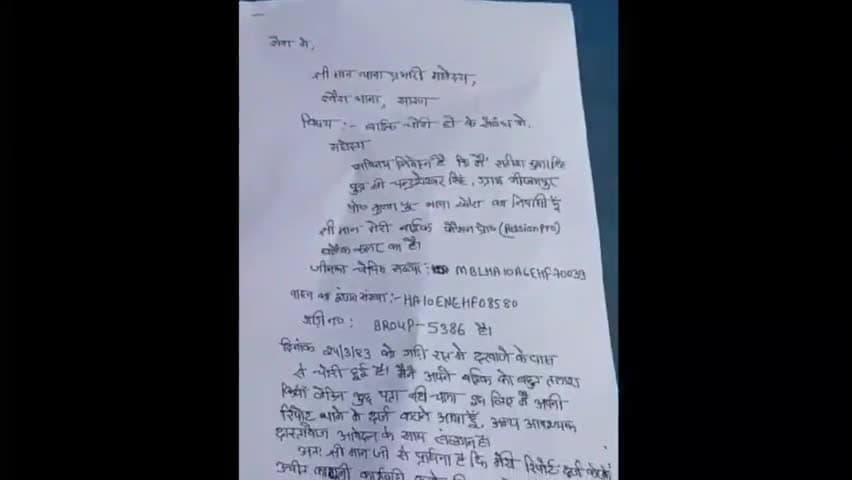 सेवा में,
श्री मान थाना प्रभारी महोदय,
थाना, सारण
विषय :- बाईक चोरी हो के संबंध में.
महोदय
सविनय निवेदन है कि मैं सतीश कुमार सिंह
पुत्र श्री चन्द्रशेखर सिंह, ग्राम
पो० थाना का निवासी हूँ
श्री मान मेरी बाईक पैशन प्रो० (Passion Pro)
ब्लैक कलर का है।
जीसका चेचिस संख्या : MBLHA10AGEHF70039
वाहन का इंजन संख्या :- HA10ENEHF08580
गाड़ी न० : BR04P-5386 है।
दिनांक 24/3/23 को रात में दरवाजे के पास
से चोरी हुई है। मैंने अपने बाईक को बहुत तलाश
किया लेकिन कुछ पता नहीं चला इस लिए मैं अपनी
रिपोर्ट थाने में दर्ज कराने आया हूँ, अन्य आवश्यक
दस्तावेज आवेदन के साथ संलग्न है।
अतः श्री मान जी से प्रार्थना है कि मेरी रिपोर्ट दर्ज करके
उचीत कानूनी कार्यवाही